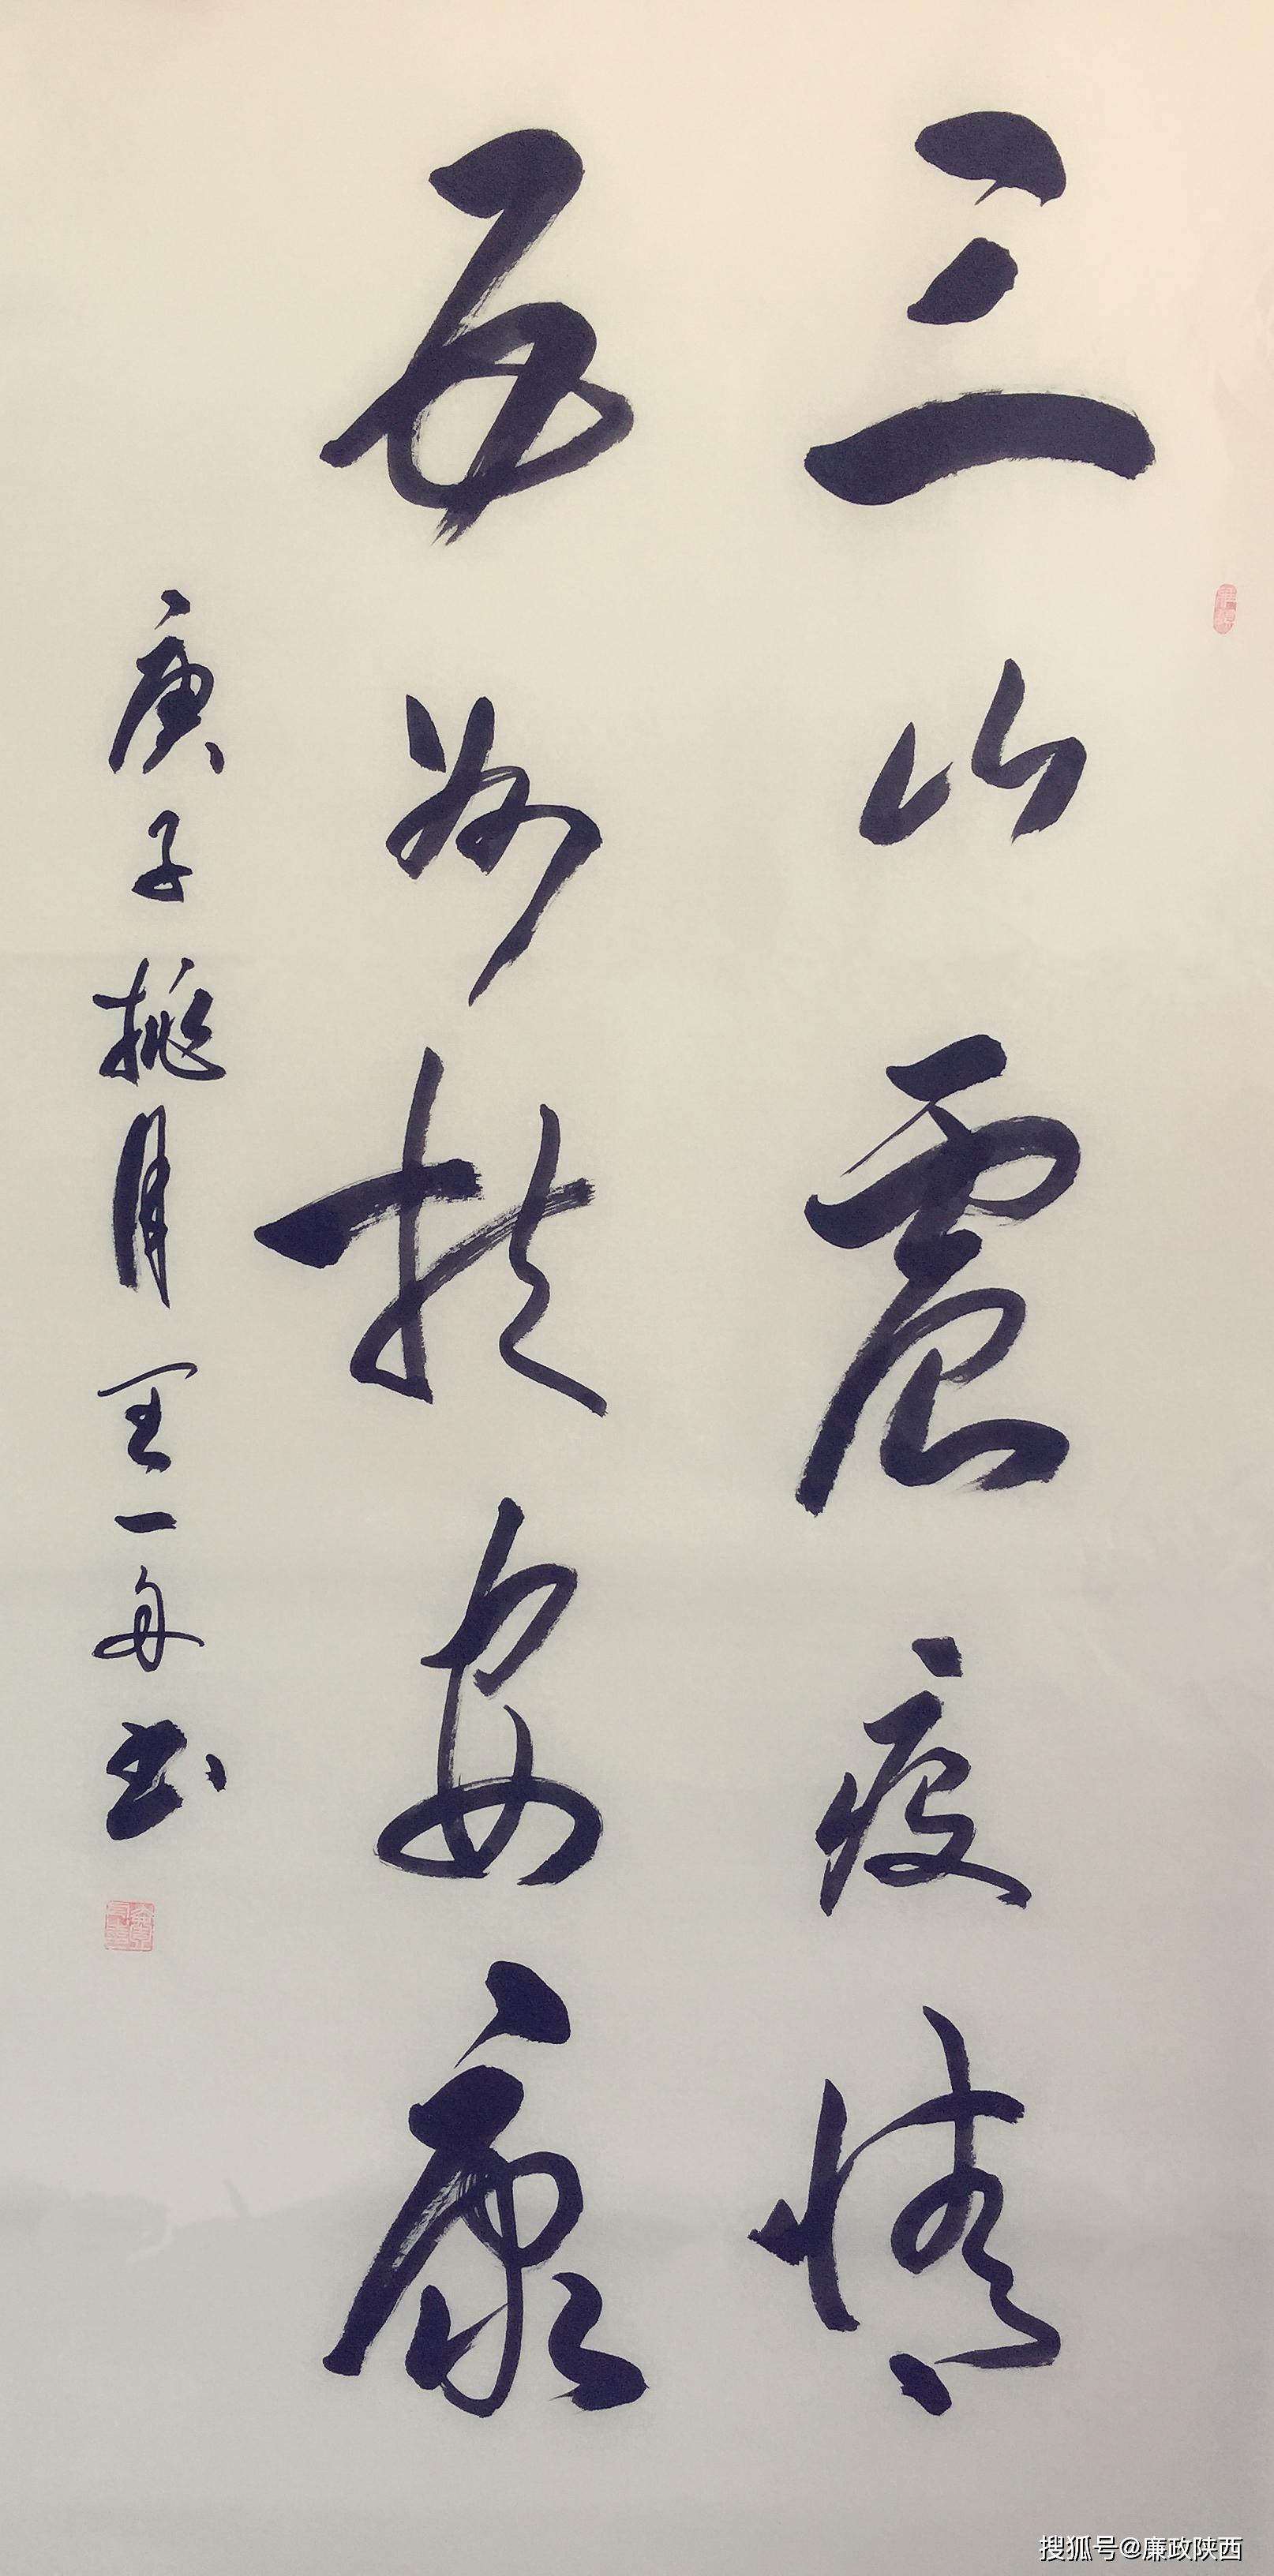 三山震疫情
五洲抗安康
庚子桃月 王一舟书
搜狐号@廉政陕西